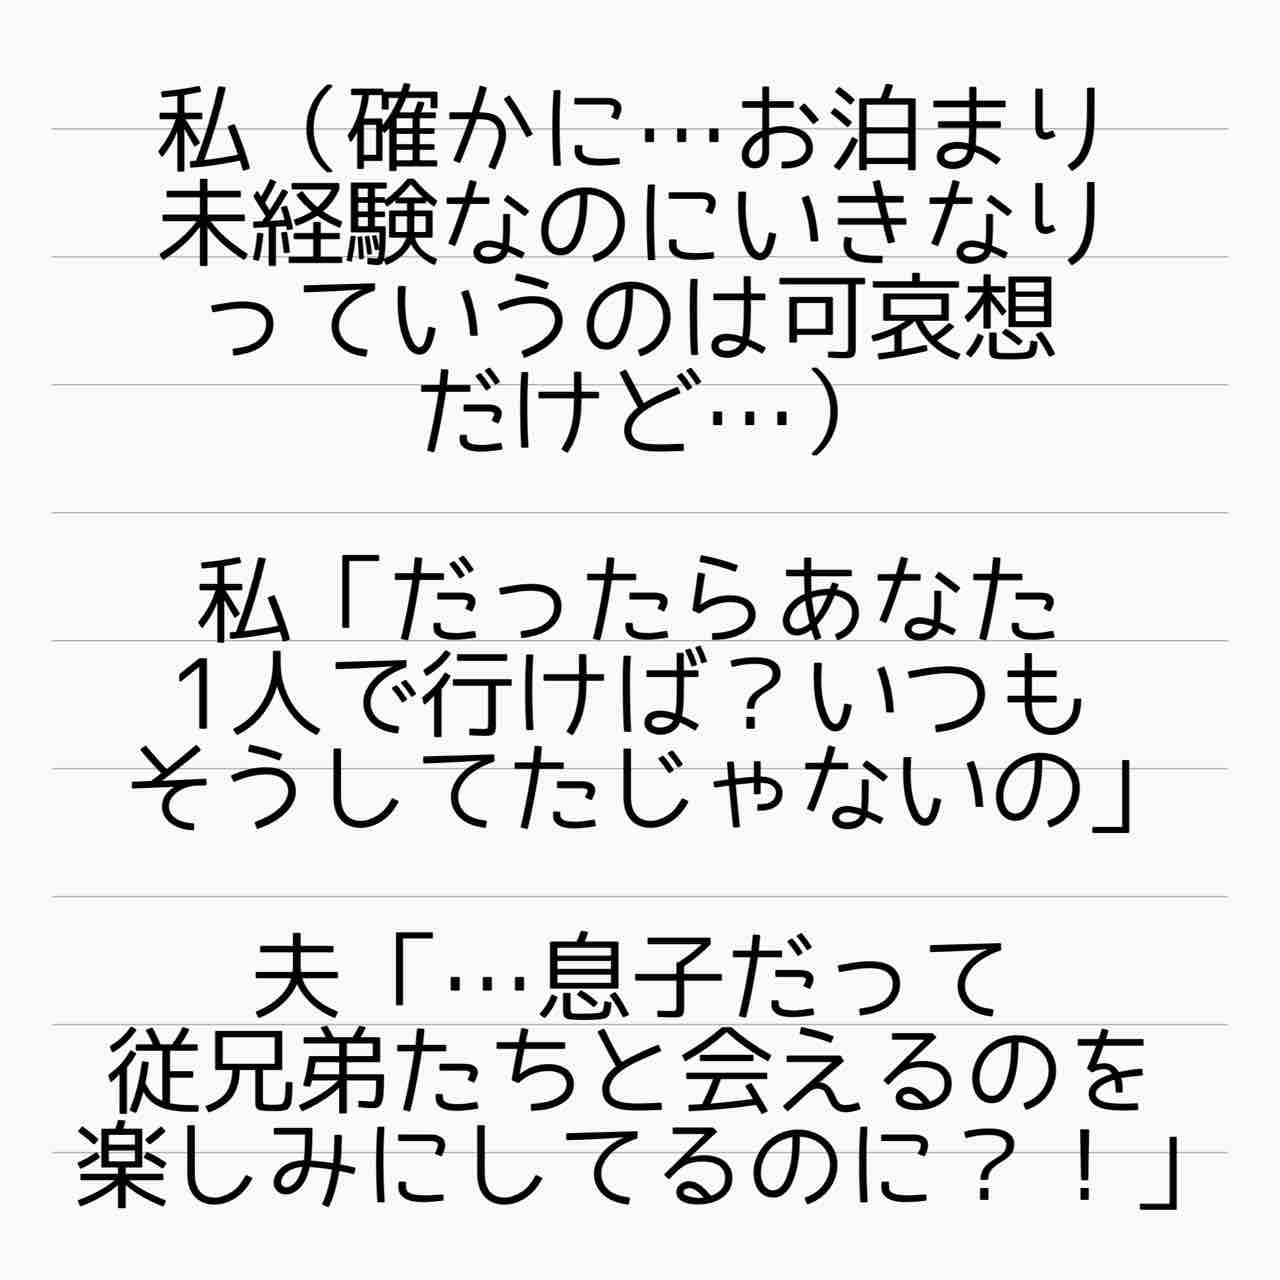 私（確かに…お泊まり
未経験なのにいきなり
っていうのは可哀想
だけど…）
私「だったらあなた
1人で行けば？いつも
そうしてたじゃないの」
夫「…息子だって
従兄弟たちと会えるのを
楽しみにしてるのに？！」